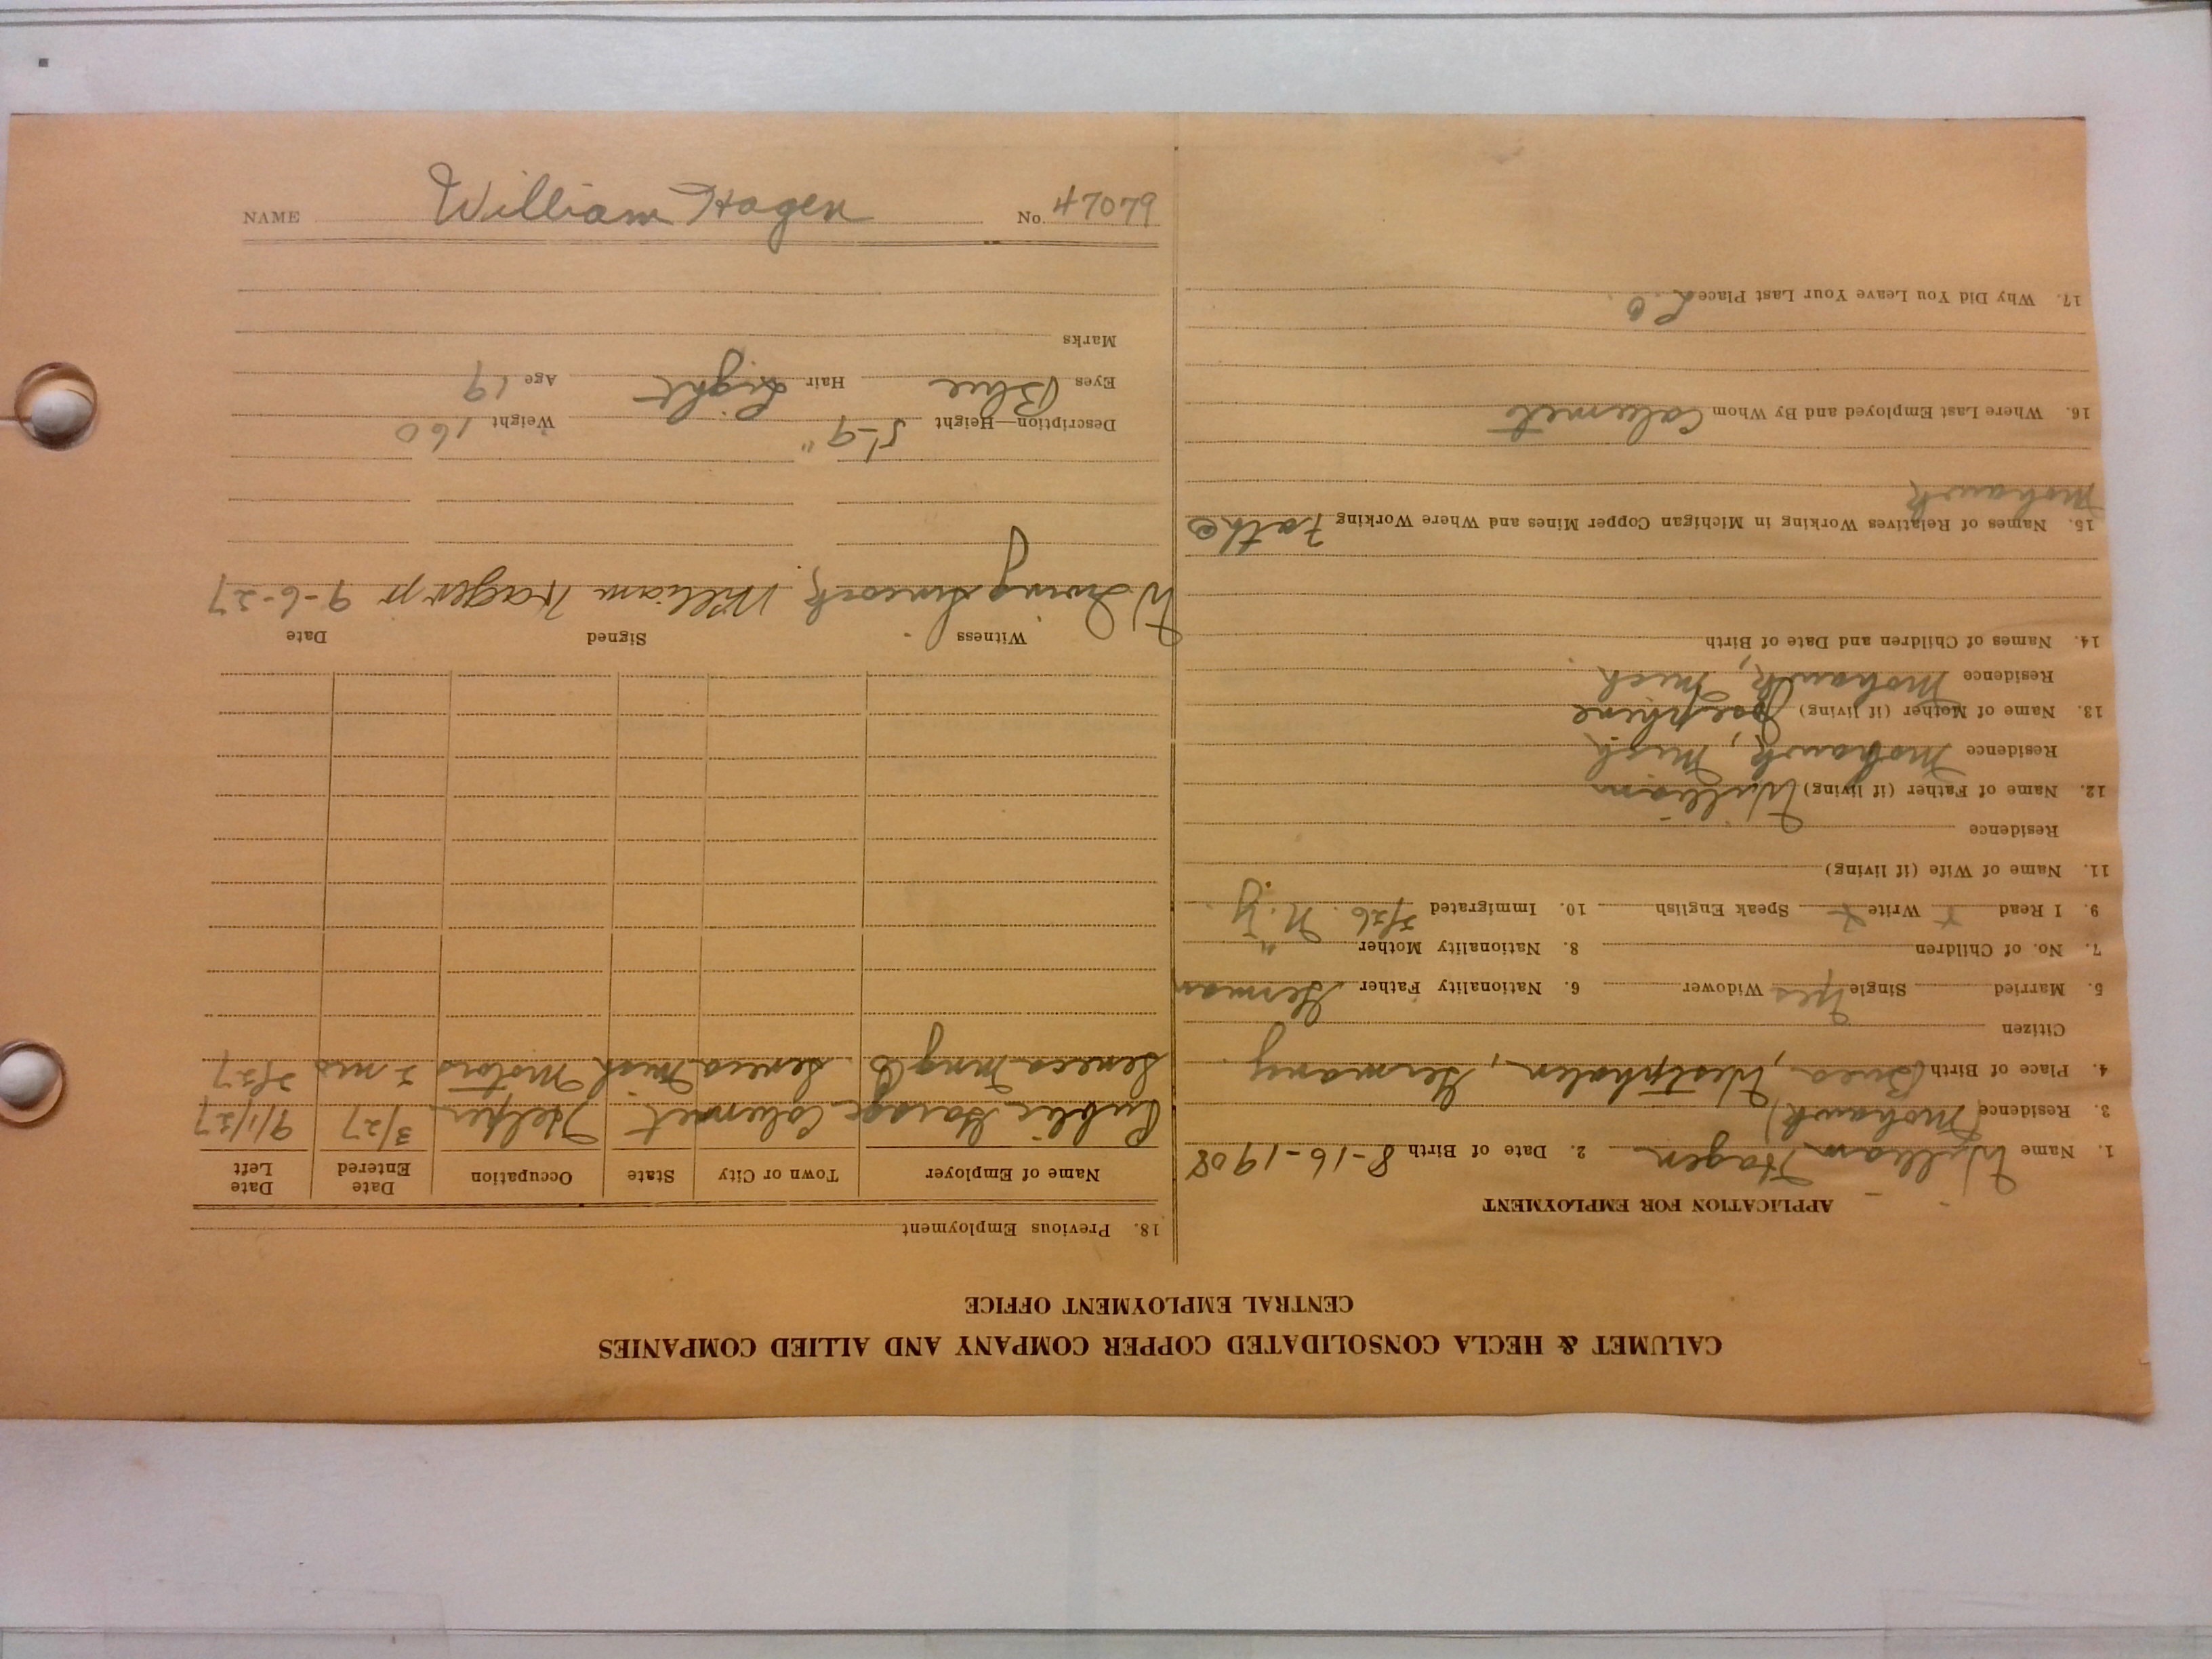 NAME William Hagen No. 47079
CALUMET & HECLA CONSOLIDATED COPPER COMPANY AND ALLIED COMPANIES
CENTRAL EMPLOYMENT OFFICE
APPLICATION FOR EMPLOYMENT
1. Name William Hagen 2. Date of Birth 8-16-1908
3. Residence (Mohawk)
4. Place of Birth Buea, Westphalen, Germany
Citizen
5. Married Single Yes Widower 6. Nationality Father German
7. No. of Children 8. Nationality Mother "
9. I Read x Write x Speak English 10. Immigrated 2/26 N.Y.
11. Name of Wife (if living)
Residence
12. Name of Father (if living) William
Residence Mohawk, Mich
13. Name of Mother (if living) Josephine
Residence Mohawk, Mich
14. Names of Children and Date of Birth
15. Names of Relatives Working in Michigan Copper Mines and Where Working Father
Mohawk
16. Where Last Employed and By Whom Calumet
17. Why Did You Leave Your Last Place L.O.
18. Previous Employment
Name of Employer Town or City State Occupation Date Entered Date Left
Public Garage Calumet Helper 3/27 9/1/27
Seneca Mng Co Seneca Mich Motors 2 mos 2/27
Witness Signed Date
W. Irving William Hagen jr 9-6-27
Description—Height 5'-9" Weight 160
Eyes Blue Hair Light Age 19
Marks